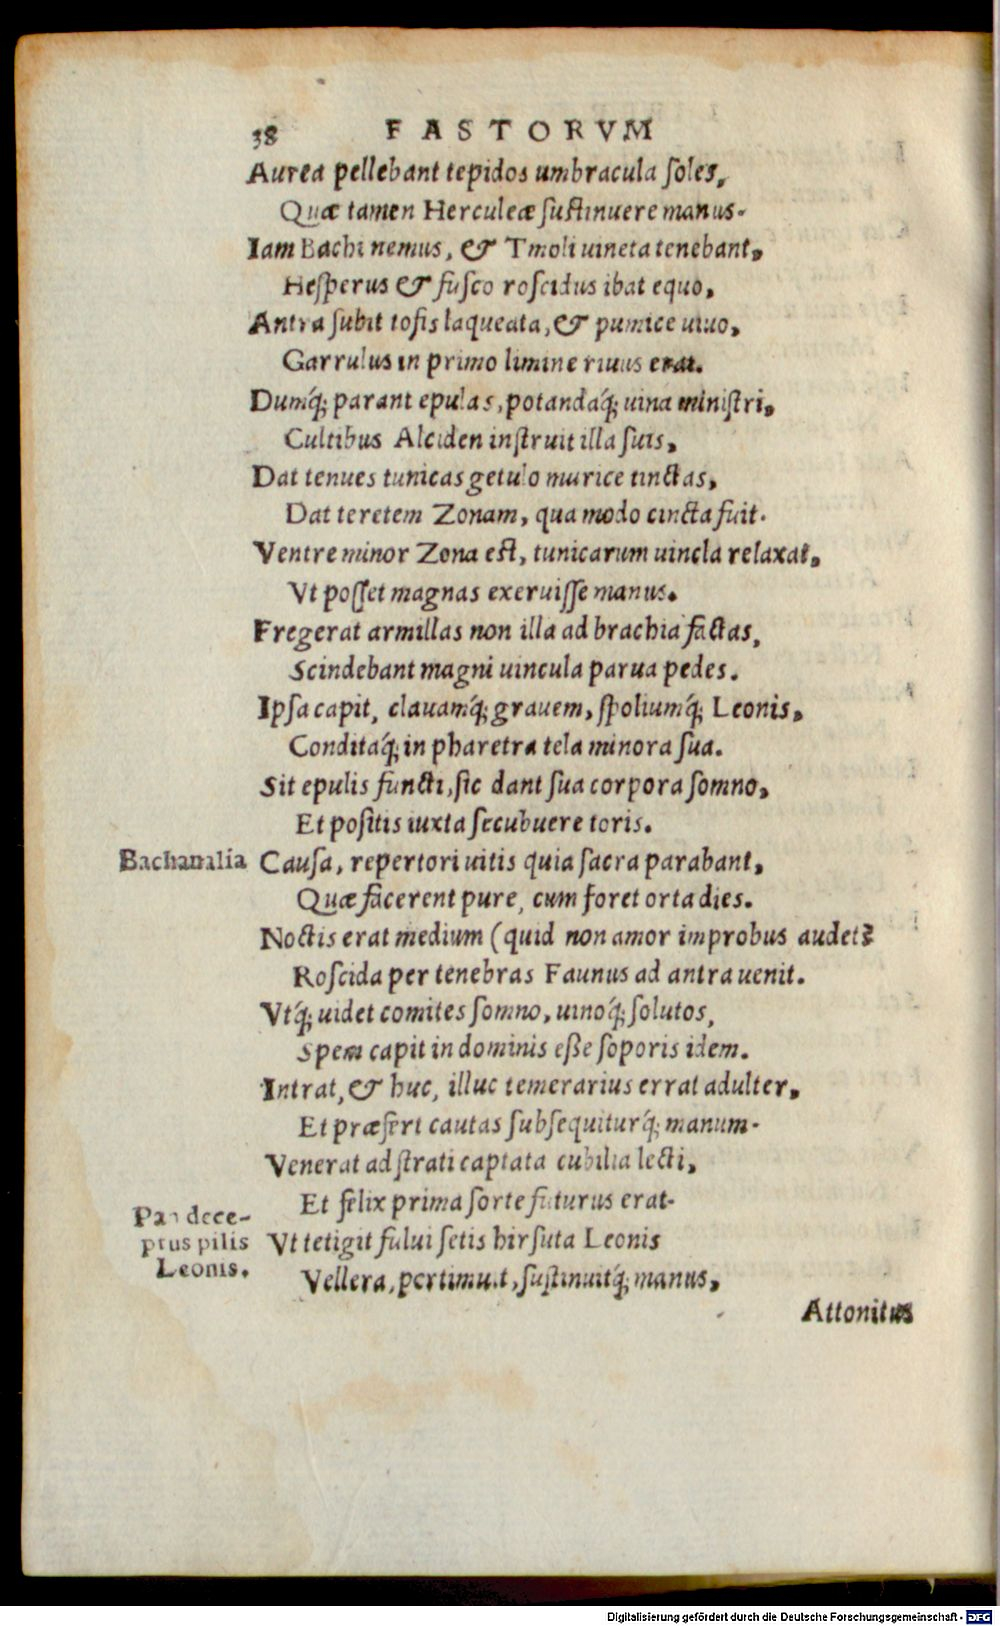 38 FASTORVM
Aurea pellebant tepidos umbracula soles,
Quæ tamen Herculeæ sustinuere manus.
Iam Bachi nemus, & Tmoli uineta tenebant,
Hesperus & fusco roscidus ibat equo,
Antra subit tofis laqueata, & pumice uiuo,
Garrulus in primo limine riuus erat.
Dumq́; parant epulas, potandaq́; uina ministri,
Cultibus Alciden instruit illa suis,
Dat tenues tunicas getulo murice tinctas,
Dat teretem Zonam, qua modo cincta fuit.
Ventre minor Zona est, tunicarum uincla relaxat,
Vt posset magnas exeruisse manus.
Fregerat armillas non illa ad brachia factas,
Scindebant magni uincula parua pedes.
Ipsa capit, clauamq́; grauem, spoliumq́; Leonis,
Conditaq́; in pharetra tela minora sua.
Sit epulis functi, sic dant sua corpora somno,
Et positis iuxta secubuere toris.
Bachanalia Causa, repertori uitis quia sacra parabant,
Quæ facerent pure, cum foret orta dies.
Noctis erat medium (quid non amor improbus audet?
Roscida per tenebras Faunus ad antra uenit.
Vtq́; uidet comites somno, uinoq́; solutos,
Spem capit in dominis esse soporis idem.
Intrat, & huc, illuc temerarius errat adulter,
Et præfert cautas subsequiturq́; manum.
Venerat ad strati captata cubilia lecti,
Et felix prima sorte futurus erat.
Pan dece-
ptus pilis
Leonis.
Vt tetigit fului setis hirsuta Leonis
Vellera, pertimuit, sustinuitq́; manus,
Attonitus
Digitalisierung gefördert durch die Deutsche Forschungsgemeinschaft - DFG